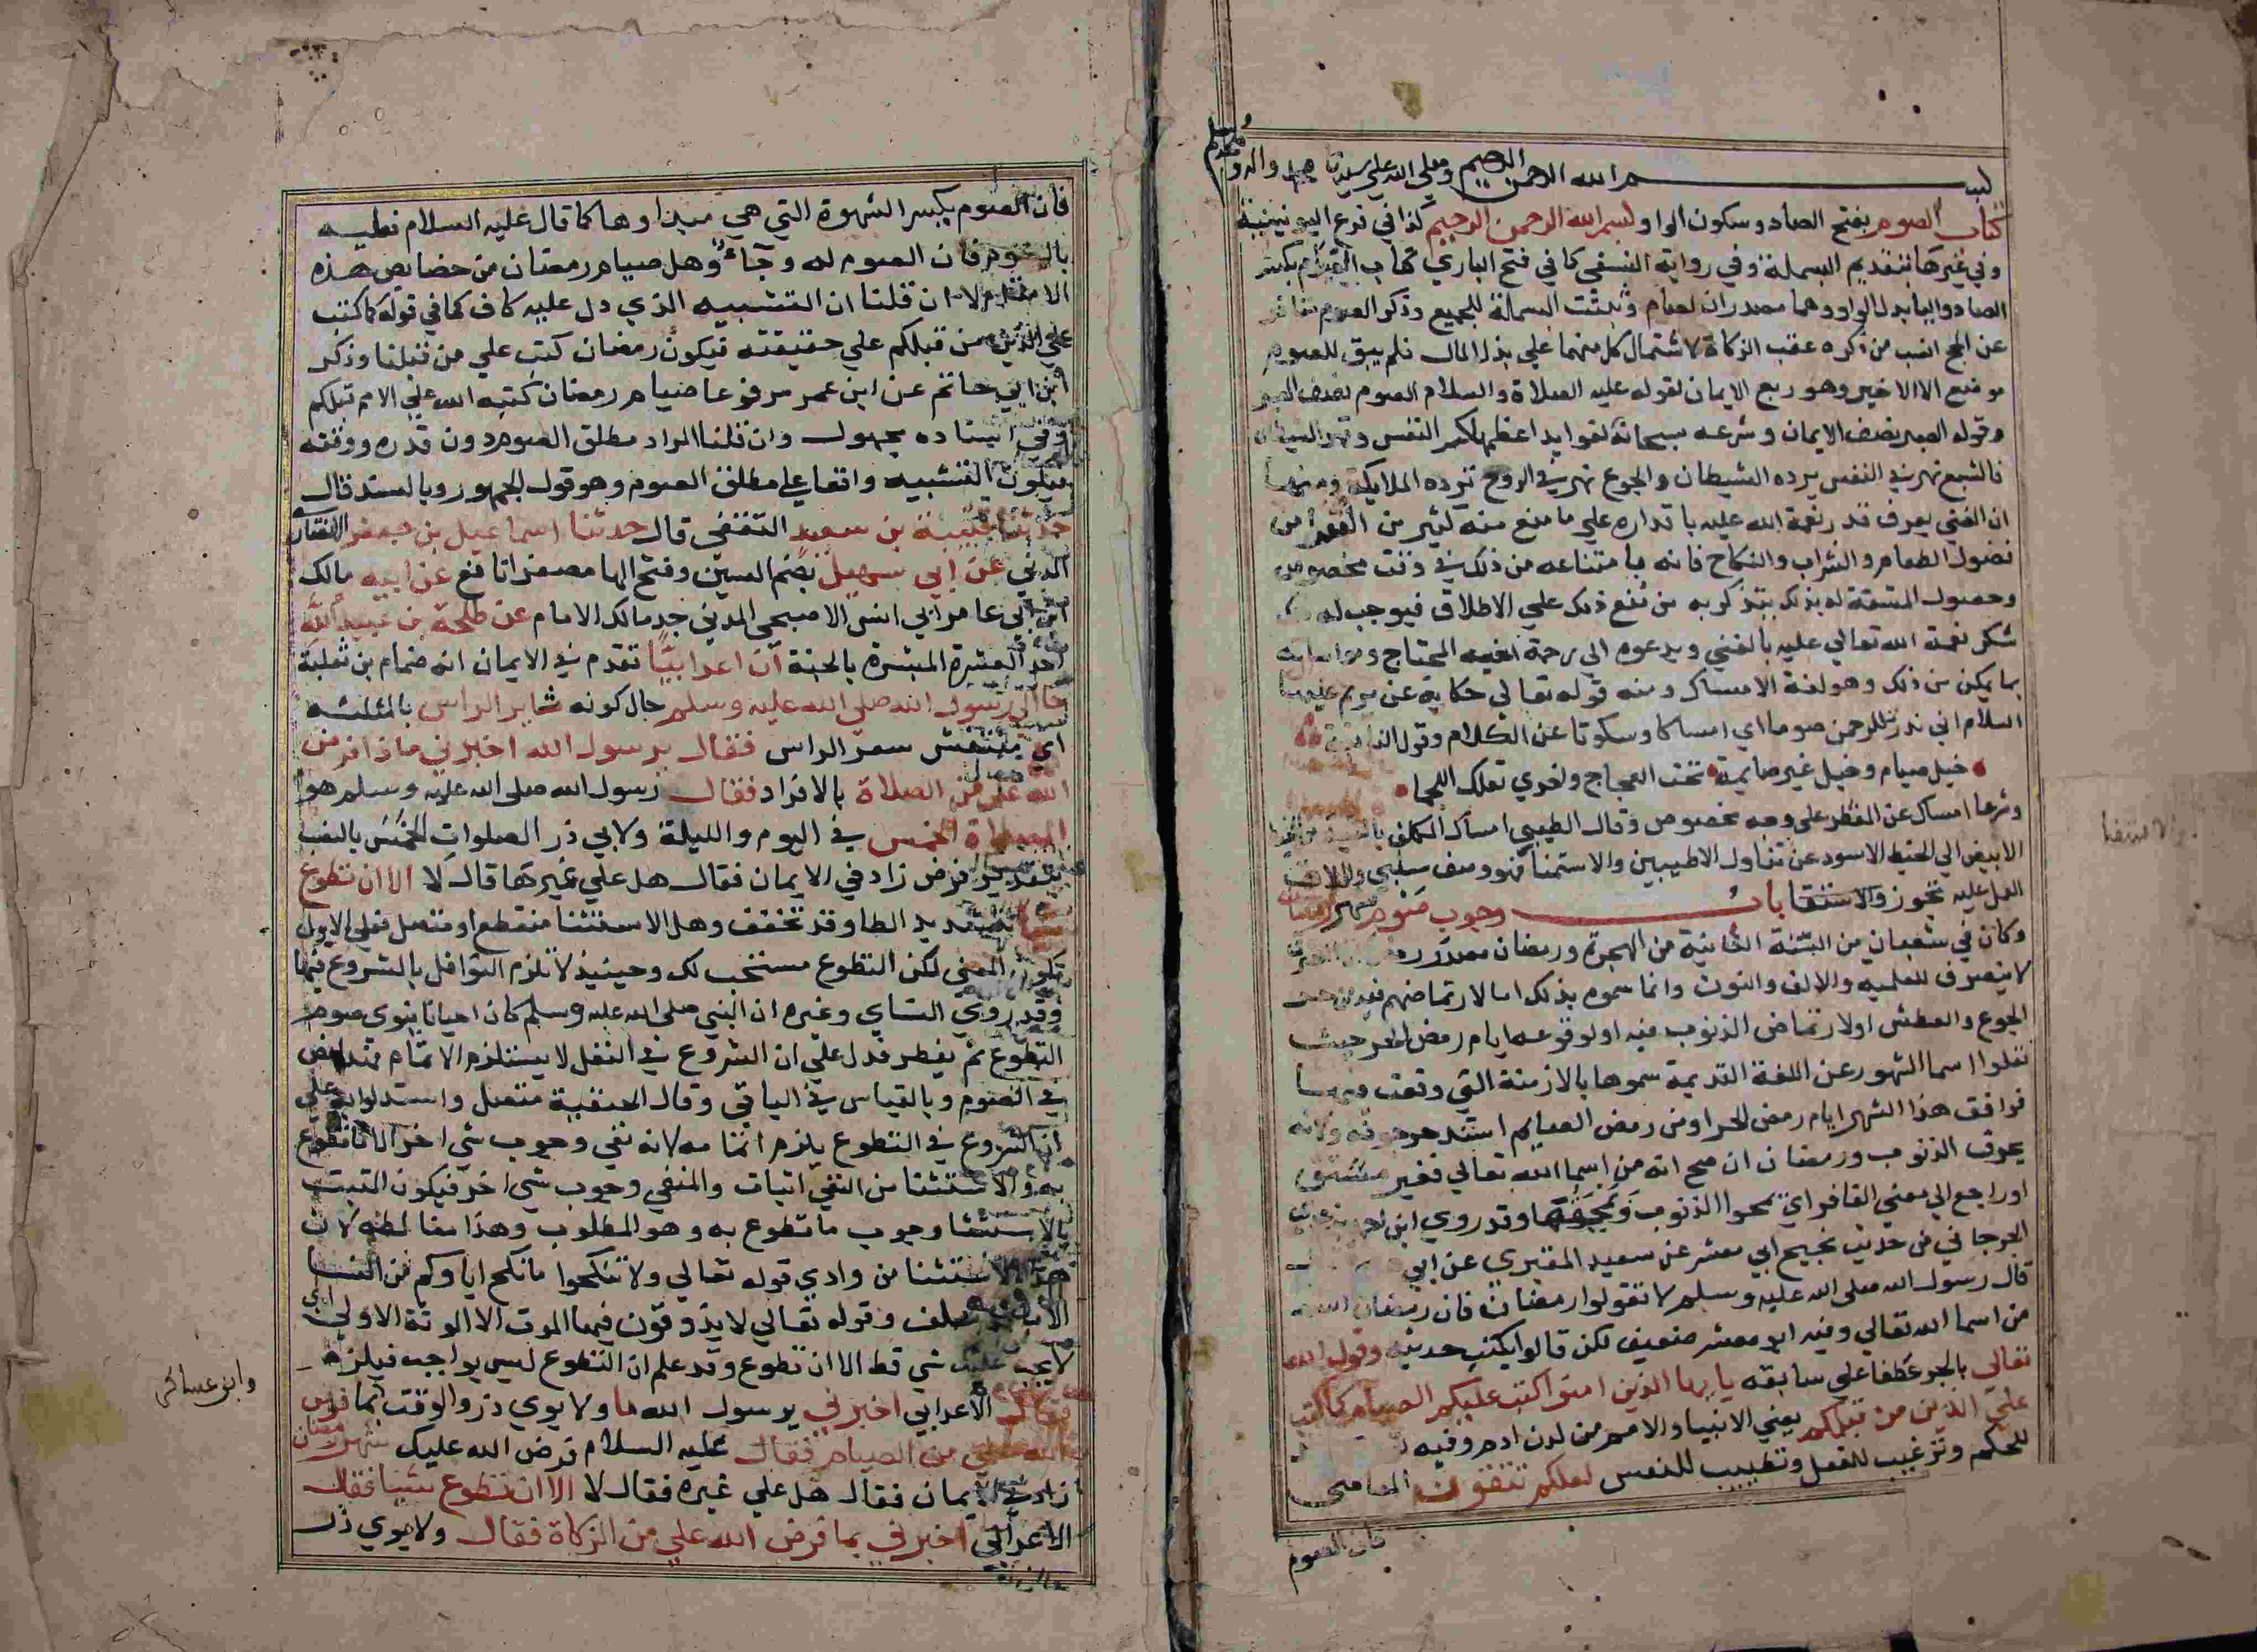 بسم الله الرحمن الرحيم وصلى الله على سيدنا محمد واله وسلم
كتاب الصوم بفتح الصاد وسكون الواو بسم الله الرحمن الرحيم كذا في فرع اليونينية
وفي غيرها بتقديم البسملة وفي رواية النسفي كما في فتح الباري كتاب الصيام بكسر
الصاد واليا بدل الواو وهما مصدران لصام وثبتت البسملة للجميع وذكر الصوم متاخرا
عن الحج انسب من ذكره عقب الزكاة لاشتمال كل منهما علي بذل المال فلم يبق للصوم
موضع الا الاخير وهو ربع الايمان لقوله عليه الصلاة والسلام الصوم نصف الصبر
وقوله الصبر نصف الايمان وشرعه سبحانه لفوايد اعظمها كسر النفس وقهر الشيطان
فالشبع نهر في النفس يرده الشيطان والجوع نهر في الروح ترده الملايكة ومنها
ان الغني يعرف قدر نعمة الله عليه باقداره علي ما منع منه كثير من الفقرا من
فضول الطعام والشراب والنكاح فانه بامتناعه من ذلك في وقت مخصوص
وحصول المشقة له بذلك يتذكر به من منع ذلك علي الاطلاق فيوجب له
شكر نعمة الله تعالي عليه بالغني ويدعوه الي رحمة اخيه المحتاج ومواساته
بما يمكن من ذلك وهو لغة الامساك ومنه قوله تعالي حكاية عن مريم عليها
السلام اني نذرت للرحمن صوما اي امساكا وسكوتا عن الكلام وقول النابغة
خيل صيام وخيل غير صايمة تحت العجاج واخري تعلك اللجما
وشرعا امساك عن المفطر على وجه مخصوص وقال الطيبي امساك المكلف بالنية من الخيط
الابيض الي الخيط الاسود عن تناول الاطيبين والاستمنا فهو وصف سلبي واطلاق
العمل عليه تجوز والاستقا باب وجوب صوم شهر رمضان
وكان في شعبان من السنة الثانية من الهجرة ورمضان مصدر رمض
لا ينصرف للعلمية والالف والنون وانما سموه بذلك اما لارتماضهم فيه من حر
الجوع والعطش او لارتماض الذنوب فيه او لوقوعه ايام رمض الحر حيث
نقلوا اسما الشهور عن اللغة القديمة سموها بالازمنة التي وقعت فيها
فوافق هذا الشهر ايام رمض الحر او من رمض الصايم اشتد حر جوفه ولانه
يحرق الذنوب ورمضان ان صح انه من اسما الله تعالي فغير مشتق
او راجع الي معني الغافر اي يمحوا الذنوب ويمحقها وقد روي ابن احمد بن عدي
الجرجاني من حديث نجيح ابي معشر عن سعيد المقبري عن ابي
قال رسول الله صلى الله عليه وسلم لا تقولوا رمضان فان رمضان اسم
من اسما الله تعالي وفيه ابو معشر ضعيف لكن قالوا يكتب حديثه وقول الله
تعالي بالجر عطفا على سابقه يا ايها الذين امنوا كتب عليكم الصيام كما كتب
على الذين من قبلكم يعني الانبيا والامم من لدن ادم وفيه
للحكم وترغيب للفعل وتطييب للنفس لعلكم تتقون المعاصي
فان الصوم
فان الصوم يكسر الشهوة التي هي مبداوها كما قال عليه السلام فعليه
بالصوم فان الصوم له وجاء وهل صيام رمضان من خصايص هذه
الامة ام لا ان قلنا ان التشبيه الذي دل عليه كاف كما في قوله كما كتب
علي الذين من قبلكم علي حقيقته فيكون رمضان كتب علي من قبلنا وذكر
ابن ابي حاتم عن ابن عمر مرفوعا صيام رمضان كتبه الله علي الامم قبلكم
وفي اسناده مجهول وان قلنا المراد مطلق الصوم دون قدره ووقته
فيكون التشبيه واقعا علي مطلق الصوم وهو قول الجمهور وبالسند قال
حدثنا قتيبة بن سعيد الثقفي قال حدثنا اسماعيل بن جعفر الانصاري
المدني عن ابي سهيل بضم السين وفتح الها مصغرا نافع عن ابيه مالك
ابن ابي عامر ابي انس الاصبحي المدني جد مالك الامام عن طلحة بن عبيد الله
احد العشرة المبشرة بالجنة ان اعرابيا تقدم في الايمان انه ضمام بن ثعلبة
جا الي رسول الله صلى الله عليه وسلم حال كونه ثاير الراس بالمثلثه
اي منتفش شعر الراس فقال يرسول الله اخبرني ماذا فرض
الله علي من الصلاة بالافراد فقال رسول الله صلى الله عليه وسلم هو
الصلاة الخمس في اليوم والليلة ولابي ذر الصلوات الخمس بالنصب
بتقدير فرض زاد في الايمان فقال هل علي غيرها قال لا الا ان تطوع
شيا بتشديد الطا وقد تخفف وهل الاستثنا منقطع او متصل فعلي الاول
يكون المعنى لكن التطوع مستحب لك وحينيذ لا تلزم النوافل بالشروع فيها
وقد روي النساي وغيره ان النبي صلى الله عليه وسلم كان احيانا ينوي صوم
التطوع ثم يفطر فدل علي ان الشروع في النفل لا يستلزم الاتمام
في الصوم وبالقياس في الباقي وقال الحنفية متصل واستدلوا به على
ان الشروع في التطوع يلزم اتمامه لانه نفي وجوب شي اخر الا ما تطوع
به والاستثنا من النفي اثبات والمنفي وجوب شي اخر فيكون المثبت
بالاستثنا وجوب ما تطوع به وهو المطلوب وهذا مغالطه لان
هذا الاستثنا من وادي قوله تعالي ولا تنكحوا ما نكح اباوكم من النسا
الا ما قد سلف وقوله تعالي لا يذوقون فيها الموت الا الموتة الاولي اي
لا يجب عليك شي قط الا ان تطوع وقد علم ان التطوع ليس بواجب فيلزم
فقال الاعرابي اخبرني يرسول الله ما ولابوي ذر والوقت بما فرض
الله علي من الصيام فقال عليه السلام فرض الله عليك شهر رمضان
زاد في الايمان فقال هل علي غيره فقال لا الا ان تطوع شيا فقال
الاعرابي اخبرني بما فرض الله علي من الزكاة فقال ولابوي ذر
وابن عساكر